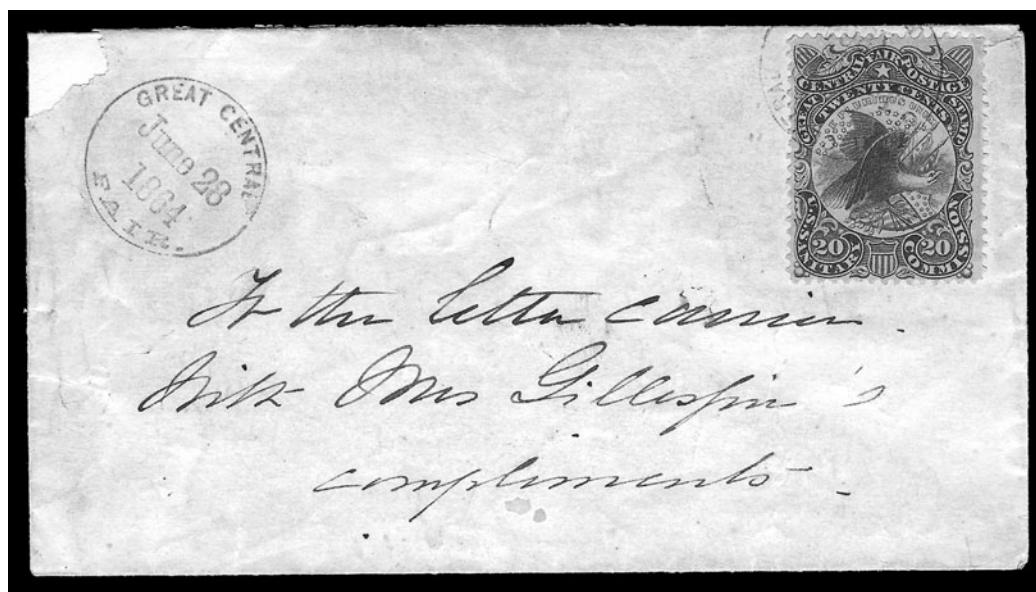 GREAT CENTRAL
June 28
1864
FAIR.
GREAT CENTRAL FAIR POSTAGE STAMP
TWENTY CENTS
U.S. SANITARY COMMISSION
20 20
To the letter carrier.
With Mrs Gillespie's
compliments